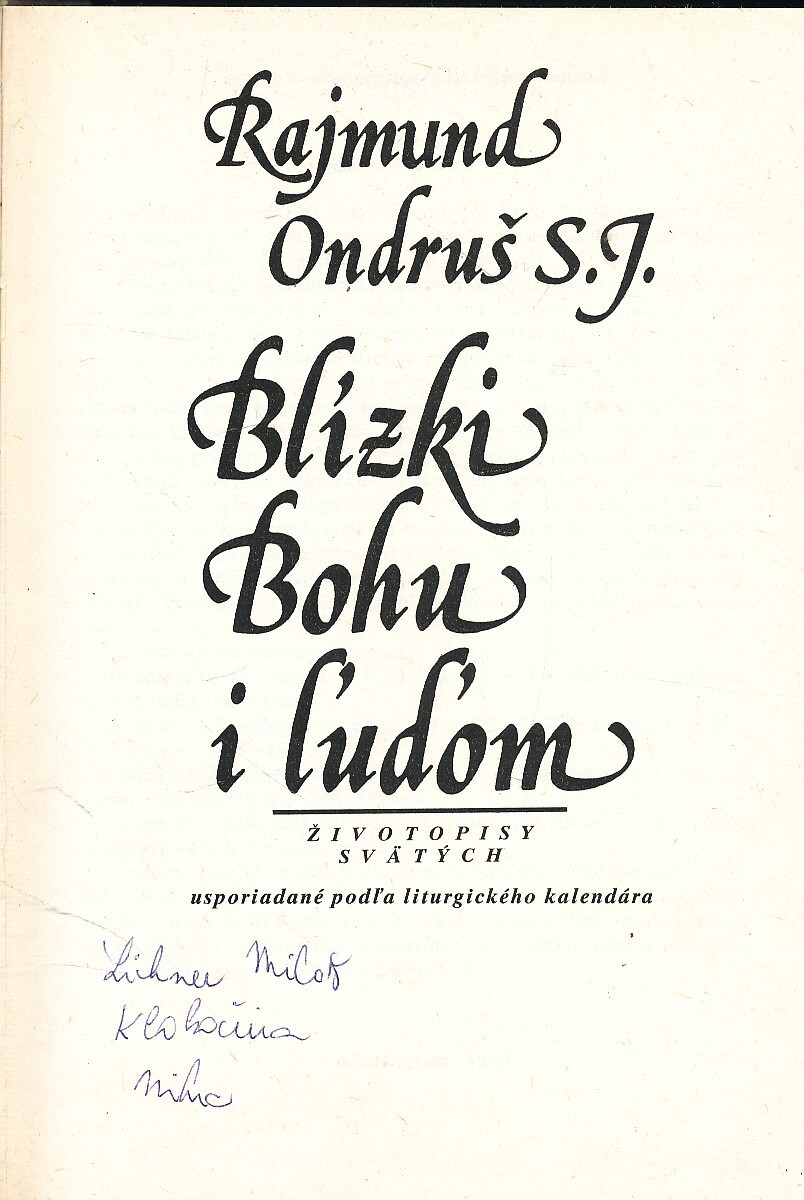 Rajmund
Ondruš S.J.
Blízki
Bohu
i ľuďom
ŽIVOTOPISY
SVÄTÝCH
usporiadané podľa liturgického kalendára
Lichner Miloš
Klokočina
Nitra